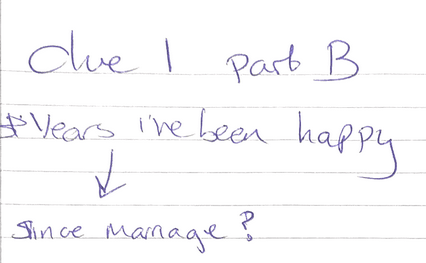 Clue 1 part B
# Years i've been happy
since marriage?